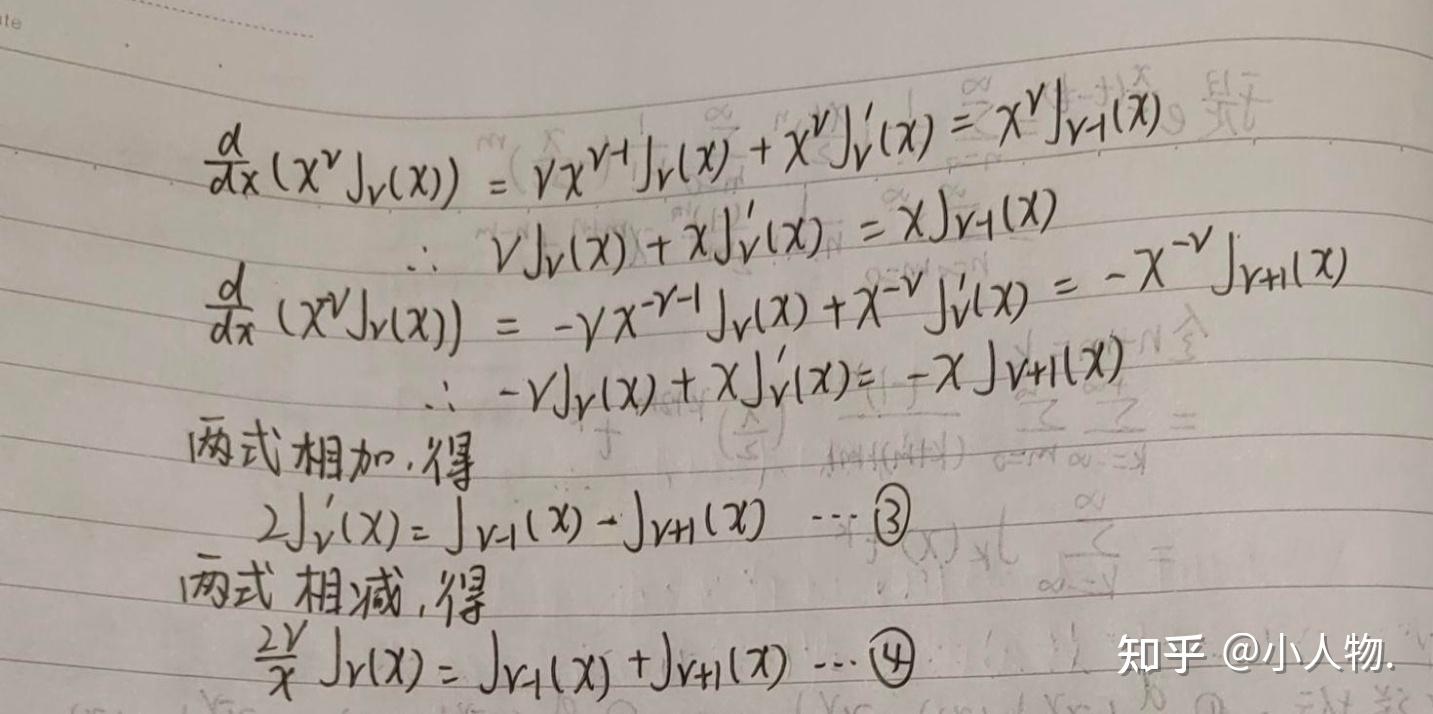 d/dx (x^ν J_ν(x)) = νx^{ν-1} J_ν(x) + x^ν J_ν'(x) = x^ν J_{ν-1}(x)
∴ νJ_ν(x) + xJ_ν'(x) = xJ_{ν-1}(x)
d/dx (x^{-ν} J_ν(x)) = -νx^{-ν-1} J_ν(x) + x^{-ν} J_ν'(x) = -x^{-ν} J_{ν+1}(x)
∴ -νJ_ν(x) + xJ_ν'(x) = -xJ_{ν+1}(x)
两式相加,得
2J_ν'(x) = J_{ν-1}(x) - J_{ν+1}(x) ... ③
两式相减,得
2ν/x J_ν(x) = J_{ν-1}(x) + J_{ν+1}(x) ... ④
知乎 @小人物.